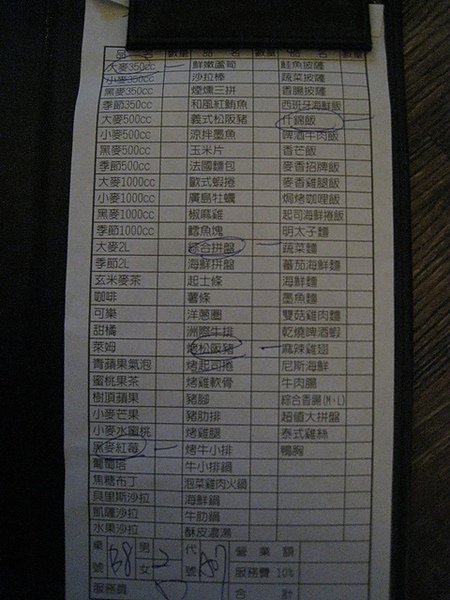 品 名 數量 品 名 數量 品 名 數量
大麥350cc 鮮嫩蘆筍 鮭魚披薩
小麥350cc 沙拉棒 蔬菜披薩
黑麥350cc 煙燻三拼 香腸披薩
季節350cc 和風紅鮪魚 西班牙海鮮飯
大麥500cc 義式松阪豬 什錦飯
小麥500cc 涼拌墨魚 啤酒牛肉飯
黑麥500cc 玉米片 香芒飯
季節500cc 法國麵包 麥香招牌飯
大麥1000cc 歐式蝦捲 麥香雞腿飯
小麥1000cc 廣島牡蠣 焗烤咖哩飯
黑麥1000cc 椒麻雞 起司海鮮捲飯
季節1000cc 鱈魚塊 明太子麵
大麥2L 綜合拼盤 蔬菜麵
季節2L 海鮮拼盤 蕃茄海鮮麵
玄米麥茶 起士條 海鮮麵
咖啡 薯條 墨魚麵
可樂 洋蔥圈 雙菇雞肉麵
甜橘 洲際牛排 乾燒啤酒蝦
萊姆 烤松阪豬 麻辣雞翅
青蘋果氣泡 烤起司捲 尼斯海鮮
蜜桃果茶 烤雞軟骨 牛肉腸
樹頂蘋果 豬腳 綜合香腸(M、L)
小麥芒果 豬肋排 超值大拼盤
小麥水蜜桃 烤雞腿 泰式雞絲
黑麥紅莓 烤牛小排 鴨胸
葡萄塔 牛小排鍋
焦糖布丁 泡菜雞肉火鍋
貝里斯沙拉 海鮮鍋
凱薩沙拉 牛肋鍋
水果沙拉 酥皮濃湯
桌號 B8 男女 2 代號 營業額
服務費 10%
服務費 合計